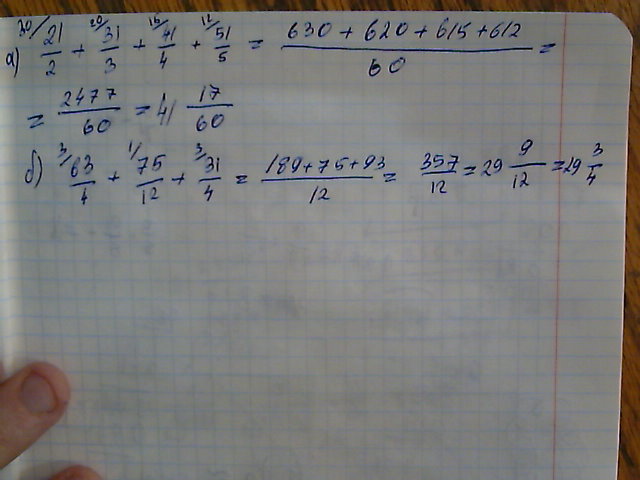 а) 30/ 21/2 + 20/ 31/3 + 15/ 41/4 + 12/ 51/5 = (630 + 620 + 615 + 612)/60 =
= 2477/60 = 41 17/60
б) 3/ 63/4 + 1/ 75/12 + 3/ 31/4 = (189+75+93)/12 = 357/12 = 29 9/12 = 29 3/4